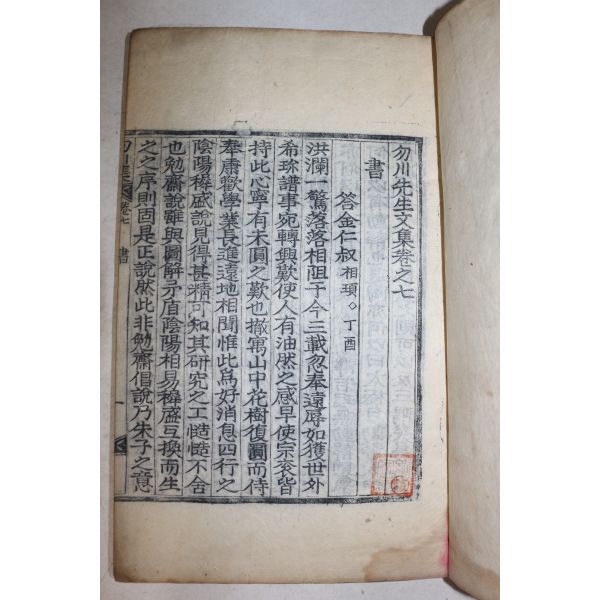 勿川先生文集卷之七
書
答金仁叔相頊○丁酉
洪瀾一驚落落相阻于今三載忽奉遠辱如獲世外
希珎譜事宛轉興歎使人有油然之感早使宗衮皆
持此心寧有未圓之歎也撤寓山中花樹復圓而侍
奉康歡學業長進遠地相聞惟此爲好消息四行之
陰陽穉盛說見得甚精可知其硏究之工慥慥不舍
也勉齋說雖與圖解矛盾陰陽相易穉盛互換而生
之之序則固是正說然此非勉齋倡說乃朱子之意
勿川集
卷七
書
一